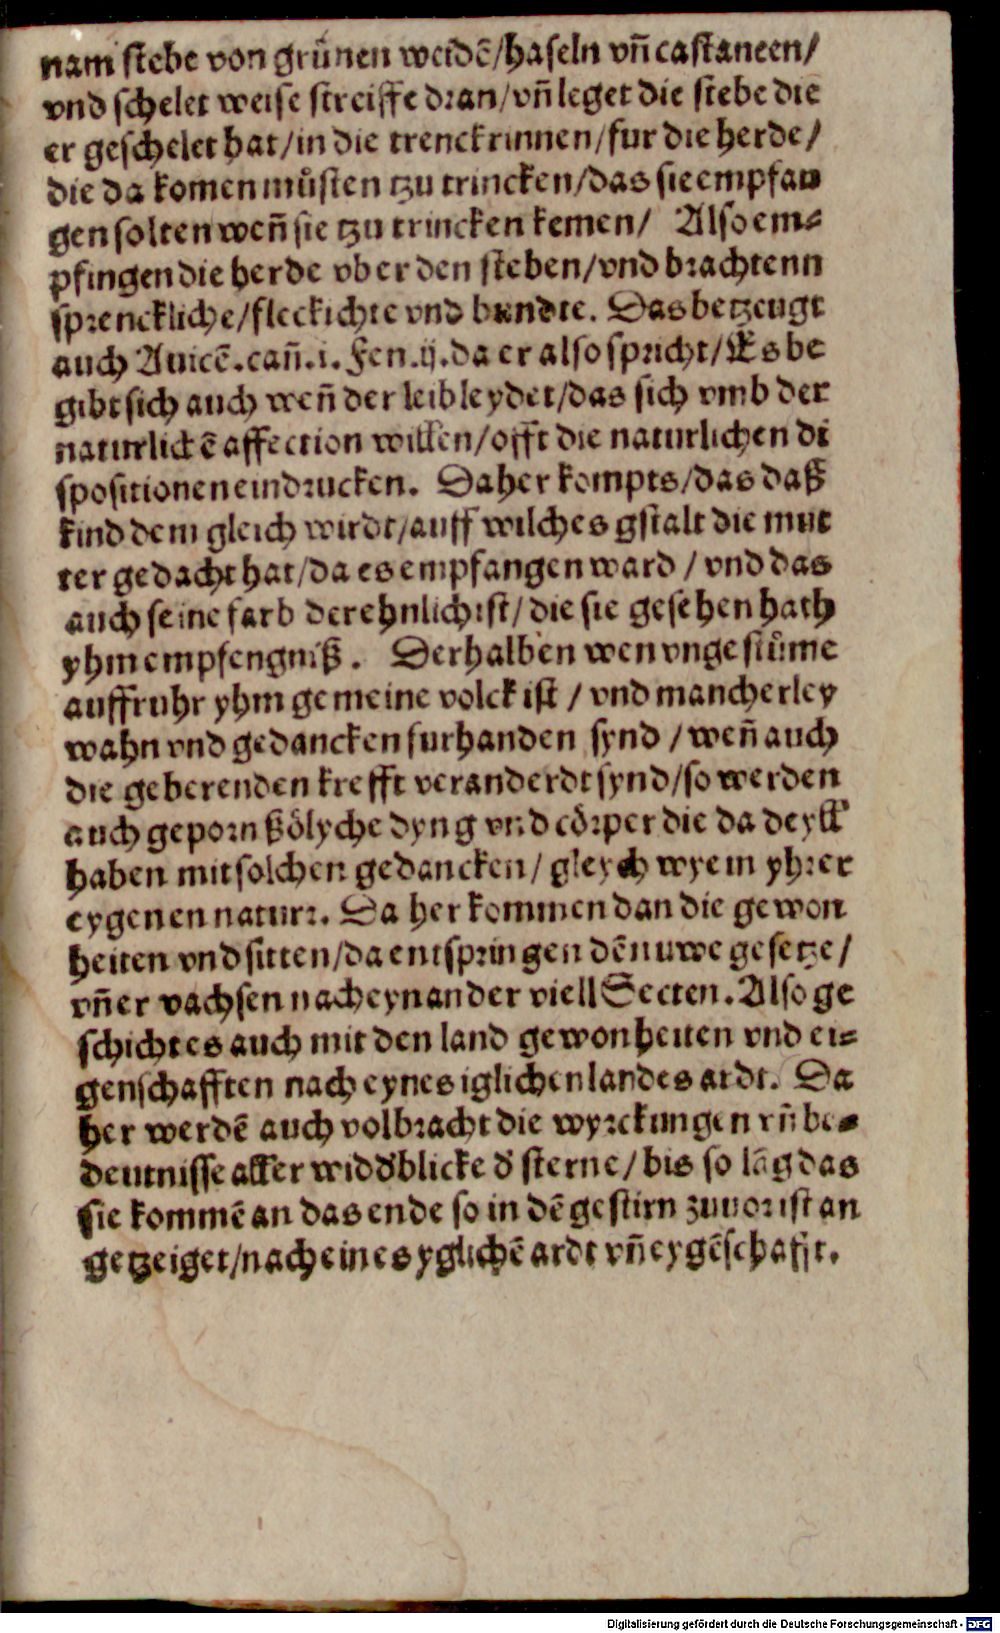 nam stebe von grůnen weidē/haseln vn̄ castaneen/
vnd schelet weise streiffe dran/vn̄ leget die stebe die
er geschelet hat/in die trenckrinnen/fur die herde/
die da komen můsten tzu trincken/das sie empfan
gen solten wen̄ sie tzu trincken kemen/ Also em⸗
pfingen die herde vber den steben/vnd brachtenn
sprenckliche/fleckichte vnd bundte. Das betzeugt
auch Auicē.can̄.i.Fen.ij.da er also spricht/Es be
gibt sich auch wen̄ der leib leydet/das sich vmb der
naturlickē affection willen/offt die naturlichen di
spositionen eindrucken. Daher kompts/das daß
kind dem gleich wirdt/auff wilches gstalt die mut
ter gedacht hat/da es empfangen ward / vnd das
auch seine farb der ehnlich ist/die sie gesehen hath
yhm empfengniß. Derhalben wen vngestůme
auffruhr yhm gemeine volck ist / vnd mancherley
wahn vnd gedancken furhanden synd / wen̄ auch
die geberenden krefft veranderdt synd/so werden
auch geporn ßölyche dyng vnd cörper die da deyll
haben mit solchen gedancken/ gleych wye in yhrer
eygenen naturr. Da her kommen dan die gewon
heiten vnd sitten/da entspringen dē nuwe gesetze/
vn̄ er vachsen nach eynander viell Secten. Also ge
schicht es auch mit den land gewonheiten vnd ei⸗
genschafften nach eynes iglichen landes ardt. Da
her werdē auch volbracht die wyrckungen vn̄ be⸗
deutnisse aller widd̄blicke d̄ sterne/bis so lāg das
sie kommē an das ende so in dē gestirn zuuor ist an
getzeiget/nach eines yglichē ardt vn̄ eygēschafft.
Digitalisierung gefördert durch die Deutsche Forschungsgemeinschaft - DFG